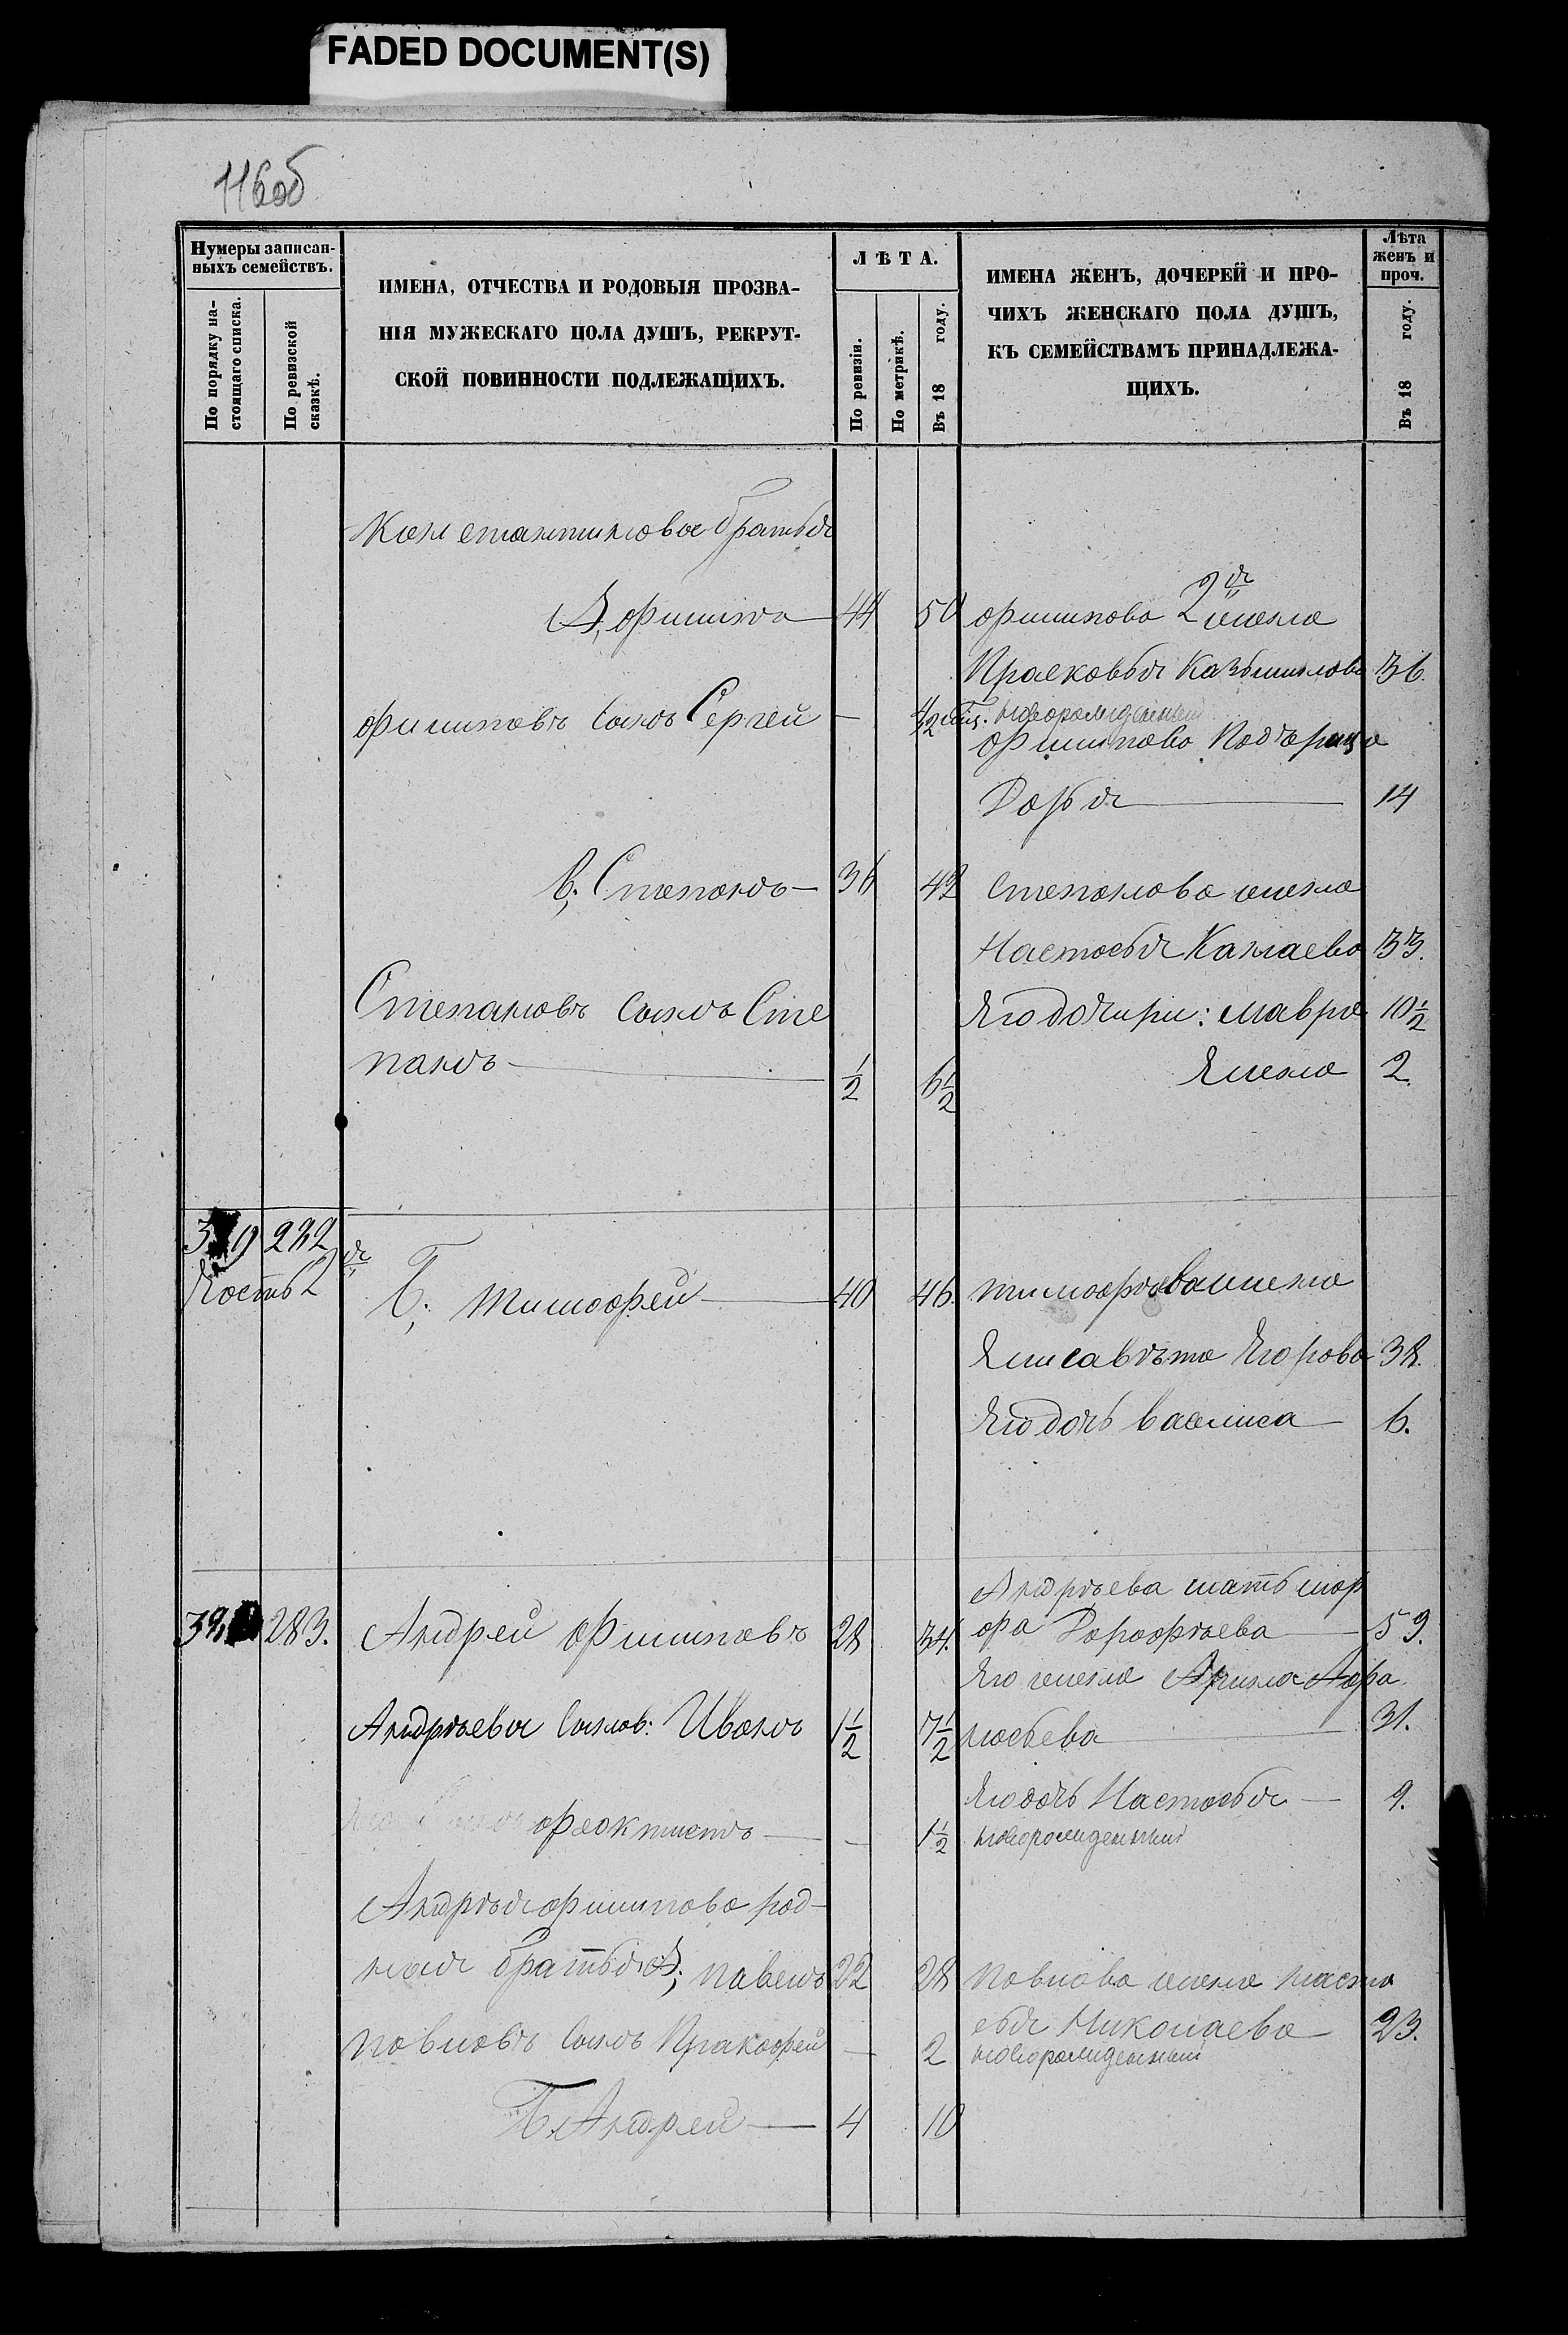 FADED DOCUMENT(S)
116об
Нумеры записан-
ныхъ семействъ.
По порядку на-
стоящаго списка.
По ревизской
сказкѣ.
ИМЕНА, ОТЧЕСТВА И РОДОВЫЯ ПРОЗВА-
НІЯ МУЖЕСКАГО ПОЛА ДУШЪ, РЕКРУТ-
СКОЙ ПОВИННОСТИ ПОДЛЕЖАЩИХЪ.
ЛѢТА.
По ревизіи.
По метрикѣ.
Въ 18 году.
ИМЕНА ЖЕНЪ, ДОЧЕРЕЙ И ПРО-
ЧИХЪ ЖЕНСКАГО ПОЛА ДУШЪ,
КЪ СЕМЕЙСТВАМЪ ПРИНАДЛЕЖА-
ЩИХЪ.
Лѣта
женъ и
проч.
Въ 18 году.
Константиновы братья
А, Филипъ 44 50 Филипова 2я жена
Прасковья Казьминова 36.
Филиповъ сынъ Сергей — новорожденный
Филипова Подчерица
Дарья 14
В, Степанъ — 36 42 Степанова жена
Настасья Канаева 33.
Степановъ сынъ Сте Его дочери: Мавра 10 1/2
панъ 1/2 6 1/2 Елена 2.
282
Часть 2я Б, Тимофей 40 46. Тимофѣва жена
Елисавѣта Егорова 38.
Его дочь Василиса — 6.
Андрѣева мать Мар
283. Андрей Филиповъ 28 34. фа Дорофѣева 59.
Его жена Арина Афа
Андрѣевы сынов: Иванъ 1 1/2 7 1/2 насьева 31.
Его дочь Настасья — 9.
Феоктистъ — 1 1/2 новорожденный
Андрѣя Филипова род-
ныя братья А, Павелъ 22 28 Павлова жена Наста
сья Николаева 23.
Павловъ сынъ Пракофей — 2 новорожденный
Б, Андрей — 4 10